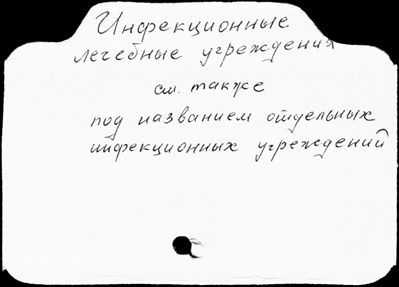 Инфекционные
лечебные учреждения
см. также
под названием отдельных
инфекционных учреждений